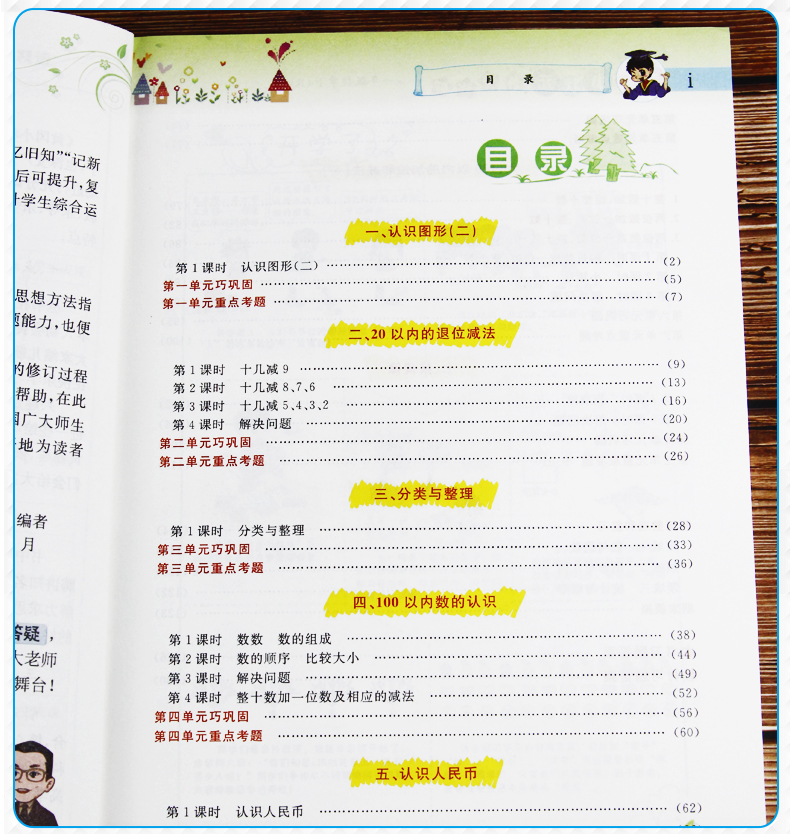 目 录
i
目录
一、认识图形(二)
第1课时 认识图形(二) (2)
第一单元巧巩固 (5)
第一单元重点考题 (7)
二、20以内的退位减法
第1课时 十几减9 (9)
第2课时 十几减8、7、6 (13)
第3课时 十几减5、4、3、2 (16)
第4课时 解决问题 (20)
第二单元巧巩固 (24)
第二单元重点考题 (26)
三、分类与整理
第1课时 分类与整理 (28)
第三单元巧巩固 (33)
第三单元重点考题 (36)
四、100以内数的认识
第1课时 数数 数的组成 (38)
第2课时 数的顺序 比较大小 (44)
第3课时 解决问题 (49)
第4课时 整十数加一位数及相应的减法 (52)
第四单元巧巩固 (56)
第四单元重点考题 (60)
五、认识人民币
第1课时 认识人民币 (62)
忆旧知”“记新
后可提升,复
学生综合运
思想方法指
能力,也便
的修订过程
帮助,在此
广大师生
地为读者
编者
月
答疑,
大老师
舞台!